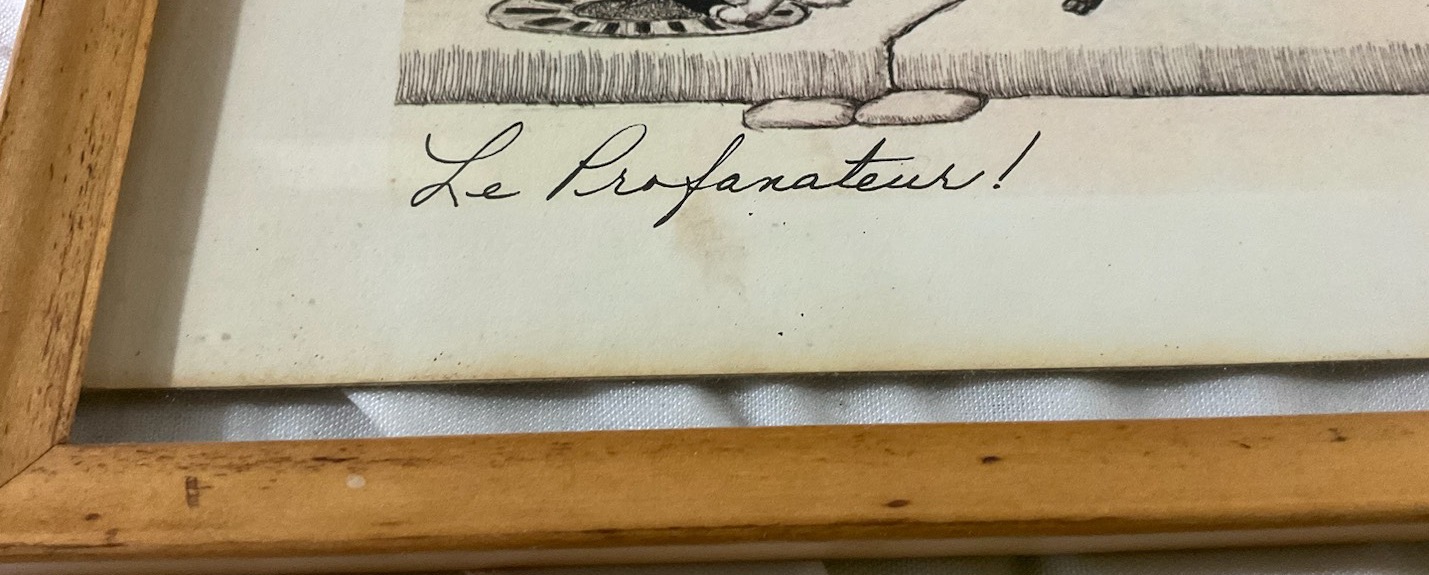 Le Profanateur!